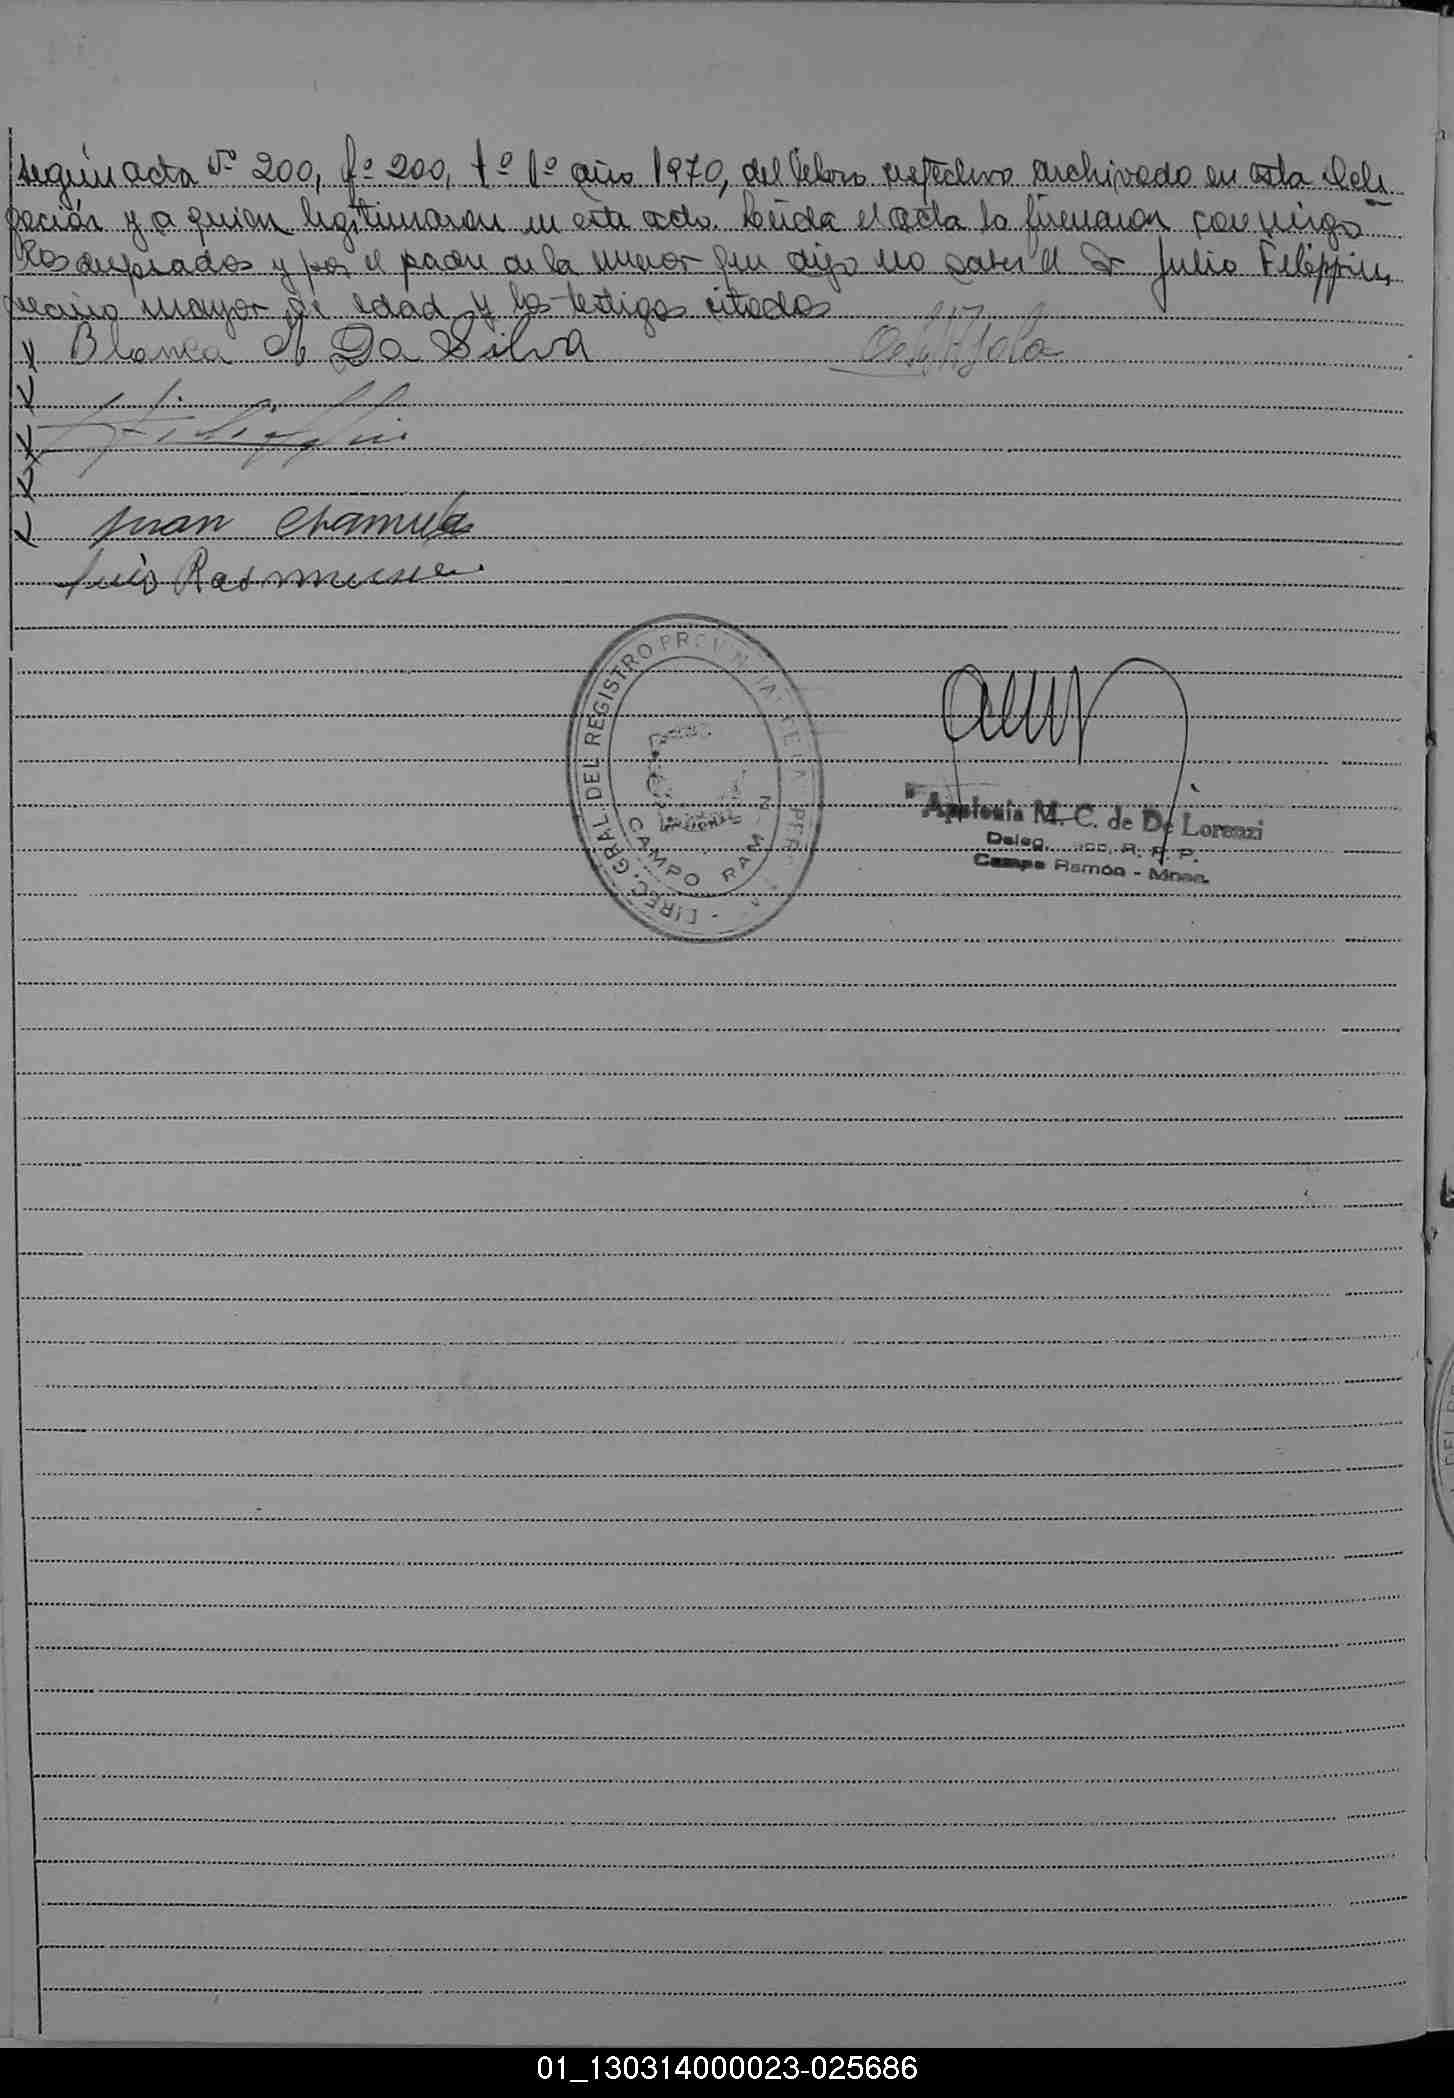 según acta Nº 200, fº 200, tº 1º año 1970, del libro respectivo archivado en esta Dele
gación y a quien legitimaron en este acto. Leída el acta la firmaron conmigo
los desposados y por el padre de la menor que dijo no saber el Sr Julio Filippin,
vecino mayor de edad y los testigos citados
Blanca N Da Silva
Juan Chamula
Luis Rasmussen
DIREC. GRAL. DEL REGISTRO PROVINCIAL DE LAS PER
CAMPO RAM N
M. C. de De Lorenzi
Deleg. R. P. P.
Campo Ramón - Mnes.
01_130314000023-025686